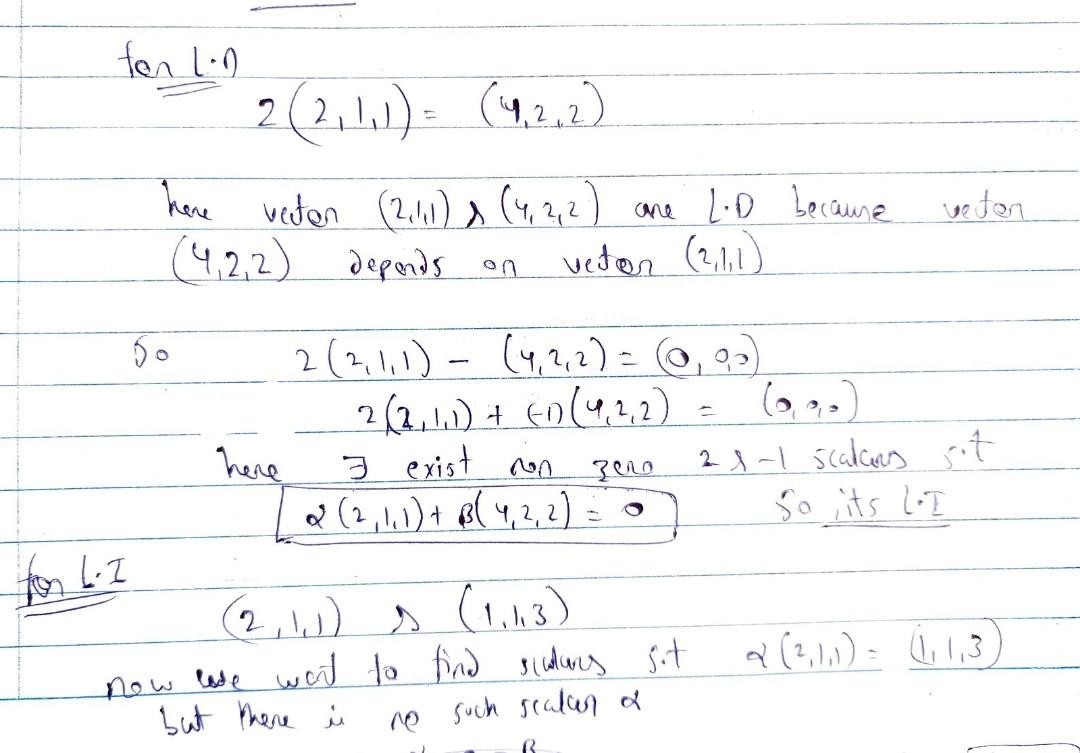 for L.D
2(2,1,1) = (4,2,2)
here vector (2,1,1) & (4,2,2) are L.D because vector
(4,2,2) depends on vector (2,1,1)
So 2(2,1,1) - (4,2,2) = (0,0,0)
2(2,1,1) + (-1)(4,2,2) = (0,0,0)
here ∃ exist non zero 2 & -1 scalars s.t
α(2,1,1) + β(4,2,2) = 0 So its L.I
for L.I
(2,1,1) & (1,1,3)
now we want to find scalars s.t α(2,1,1) = (1,1,3)
but there is no such scalar α